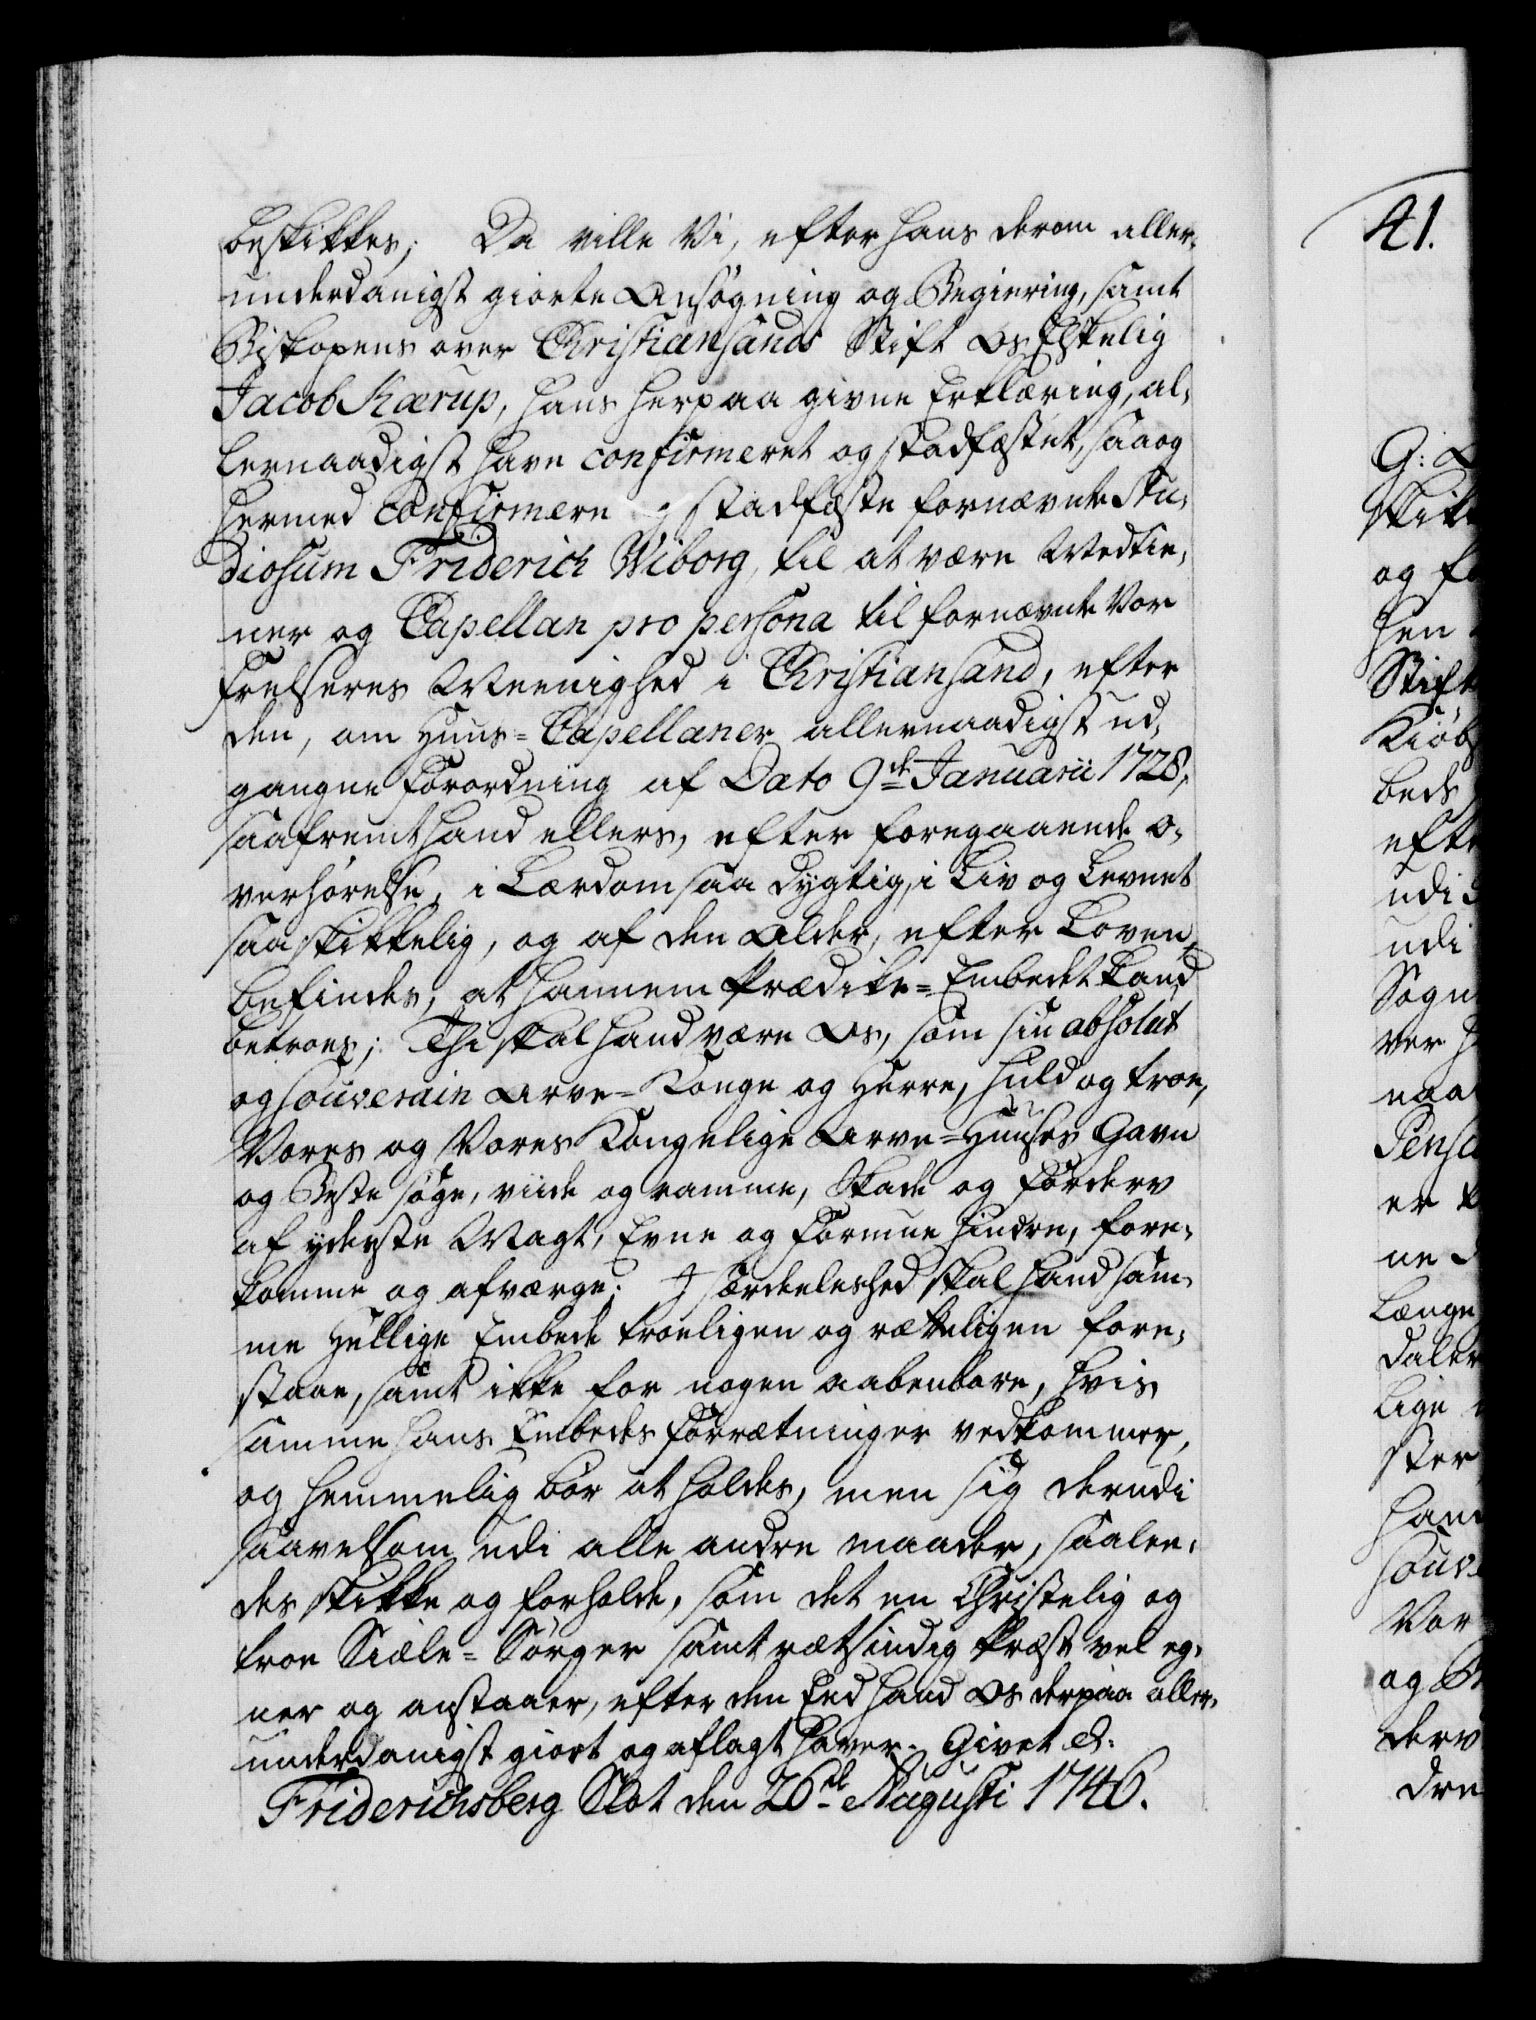 beskikkes; Da ville Vi, efter hans derom aller-
underdanigst giorte Ansøgning og Begiering, samt
Biskopens over Christiansands Stift Os Elskelig
Jacob Kærup, hans herpaa givne Erklæring, al-
lernaadigst have confirmeret og stadfæstet, saa og
hermed Confirmere og stadfæste fornævnte Stu-
diosum Friderich Wiborg, til at være Medtie-
ner og Capellan pro persona til fornævnte Vor
Frelseres Meenighed i Christiansand, efter
den, om Huus-Capellaner allernaadigst ud-
gangne Forordning af Dato 9de Januarii 1728,
saafremt hand ellers, efter foregaaende o-
verhørelse, i Lærdom saa dygtig, i Liv og Levnet
saa skikkelig, og af den Alder, efter Loven,
befindes, at hannem Prædike-Embedet kand
betroes; Thi skal hand være Os, som sin absolut
og souverain Arve-Konge og Herre, huld og troe,
Vores og Vores Kongelige Arve-Huuses Gavn
og Beste søge, viide og ramme, Skade og Forderv
af yderste Magt, Evne og Formue hindre, fore-
komme og afværge; J særdeleshed skal hand sam-
me Hellige Embede troeligen og rætteligen fore-
staae, samt ikke for nogen aabenbare, hvis
samme hans Embedes Forrætninger vedkommer,
og hemmelig bør at holdes, men sig derudi
saavelsom udi alle andre maader, saalee-
des skikke og forholde, som det en Christelig og
troe Siæle-Sørger samt rætsindig Præst vel eg-
ner og anstaaer, efter den Eed hand Os derpaa aller-
underdanigst giort og aflagt haver. Givet &:
Friderichsberg Slot den 26de Augusti 1746.
41.
G:
skik
og fo
hen
Stift
Kiøb
beds
efte
udi
udi
Sogn
ver
naa
Pens
er
ne
længe
daler
lige
ster
han
souv
Vor
og
derv
dre